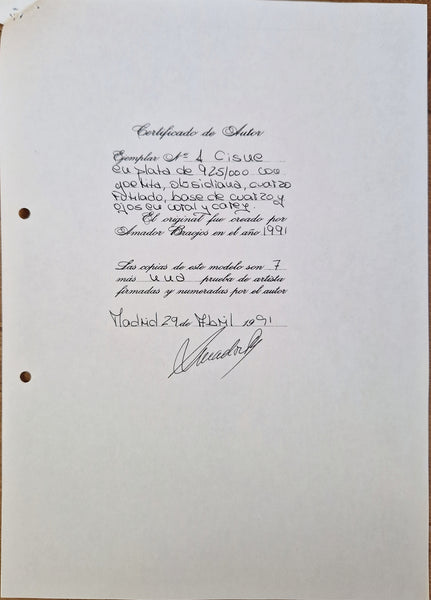 Certificado de Autor
Ejemplar Nº 1 Cisne
en plata de 925/000 con
goetita, obsidiana, cuarzo
rutilado, base de cuarzo y
ojos en coral y carey.
El original fue creado por
Amador Braojos en el año 1991
Las copias de este modelo son 7
más una prueba de artista
firmadas y numeradas por el autor
Madrid 29 de Abril 1991
Amador B